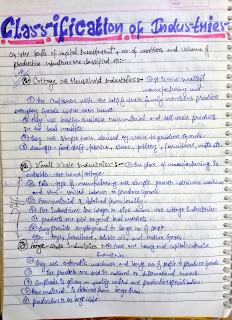 Classification of Industries
On the basis of capital investment, no. of workers and volume of
production industries are classified as:-
① Cottage or Household Industries:- ① It is the smallest
manufacturing unit.
② The craftsmen with the help of their family members produces
everyday goods in their own house.
③ They use locally available raw material and sell their products
in the local markets.
④ They use simple tools devised by them to produce goods.
⑤ Example - food stuff, fabrics, shoes, pottery, furniture, mats etc.
② Small Scale Industries:- ① The place of manufacturing is
outside the home/cottage.
② This type of manufacturing use simple power driven machines
and semi-skilled labours to produce goods.
③ Raw material is obtained from locally.
④ The industries are larger in size than the cottage industries.
⑤ products are sold in local markets.
⑥ They provide employment to large no. of people
Toys, furniture, edible oil, and leather goods.
③ Large-Scale Industries:- ① These are heavy and capital intensive
industries.
② They use automatic machines and large no. of people to produce goods
③ The products are sold to national or international market
④ Emphasis is given on quality control and production specialisation
⑤ Raw material is obtained from large areas.
⑥ production is on large scale.